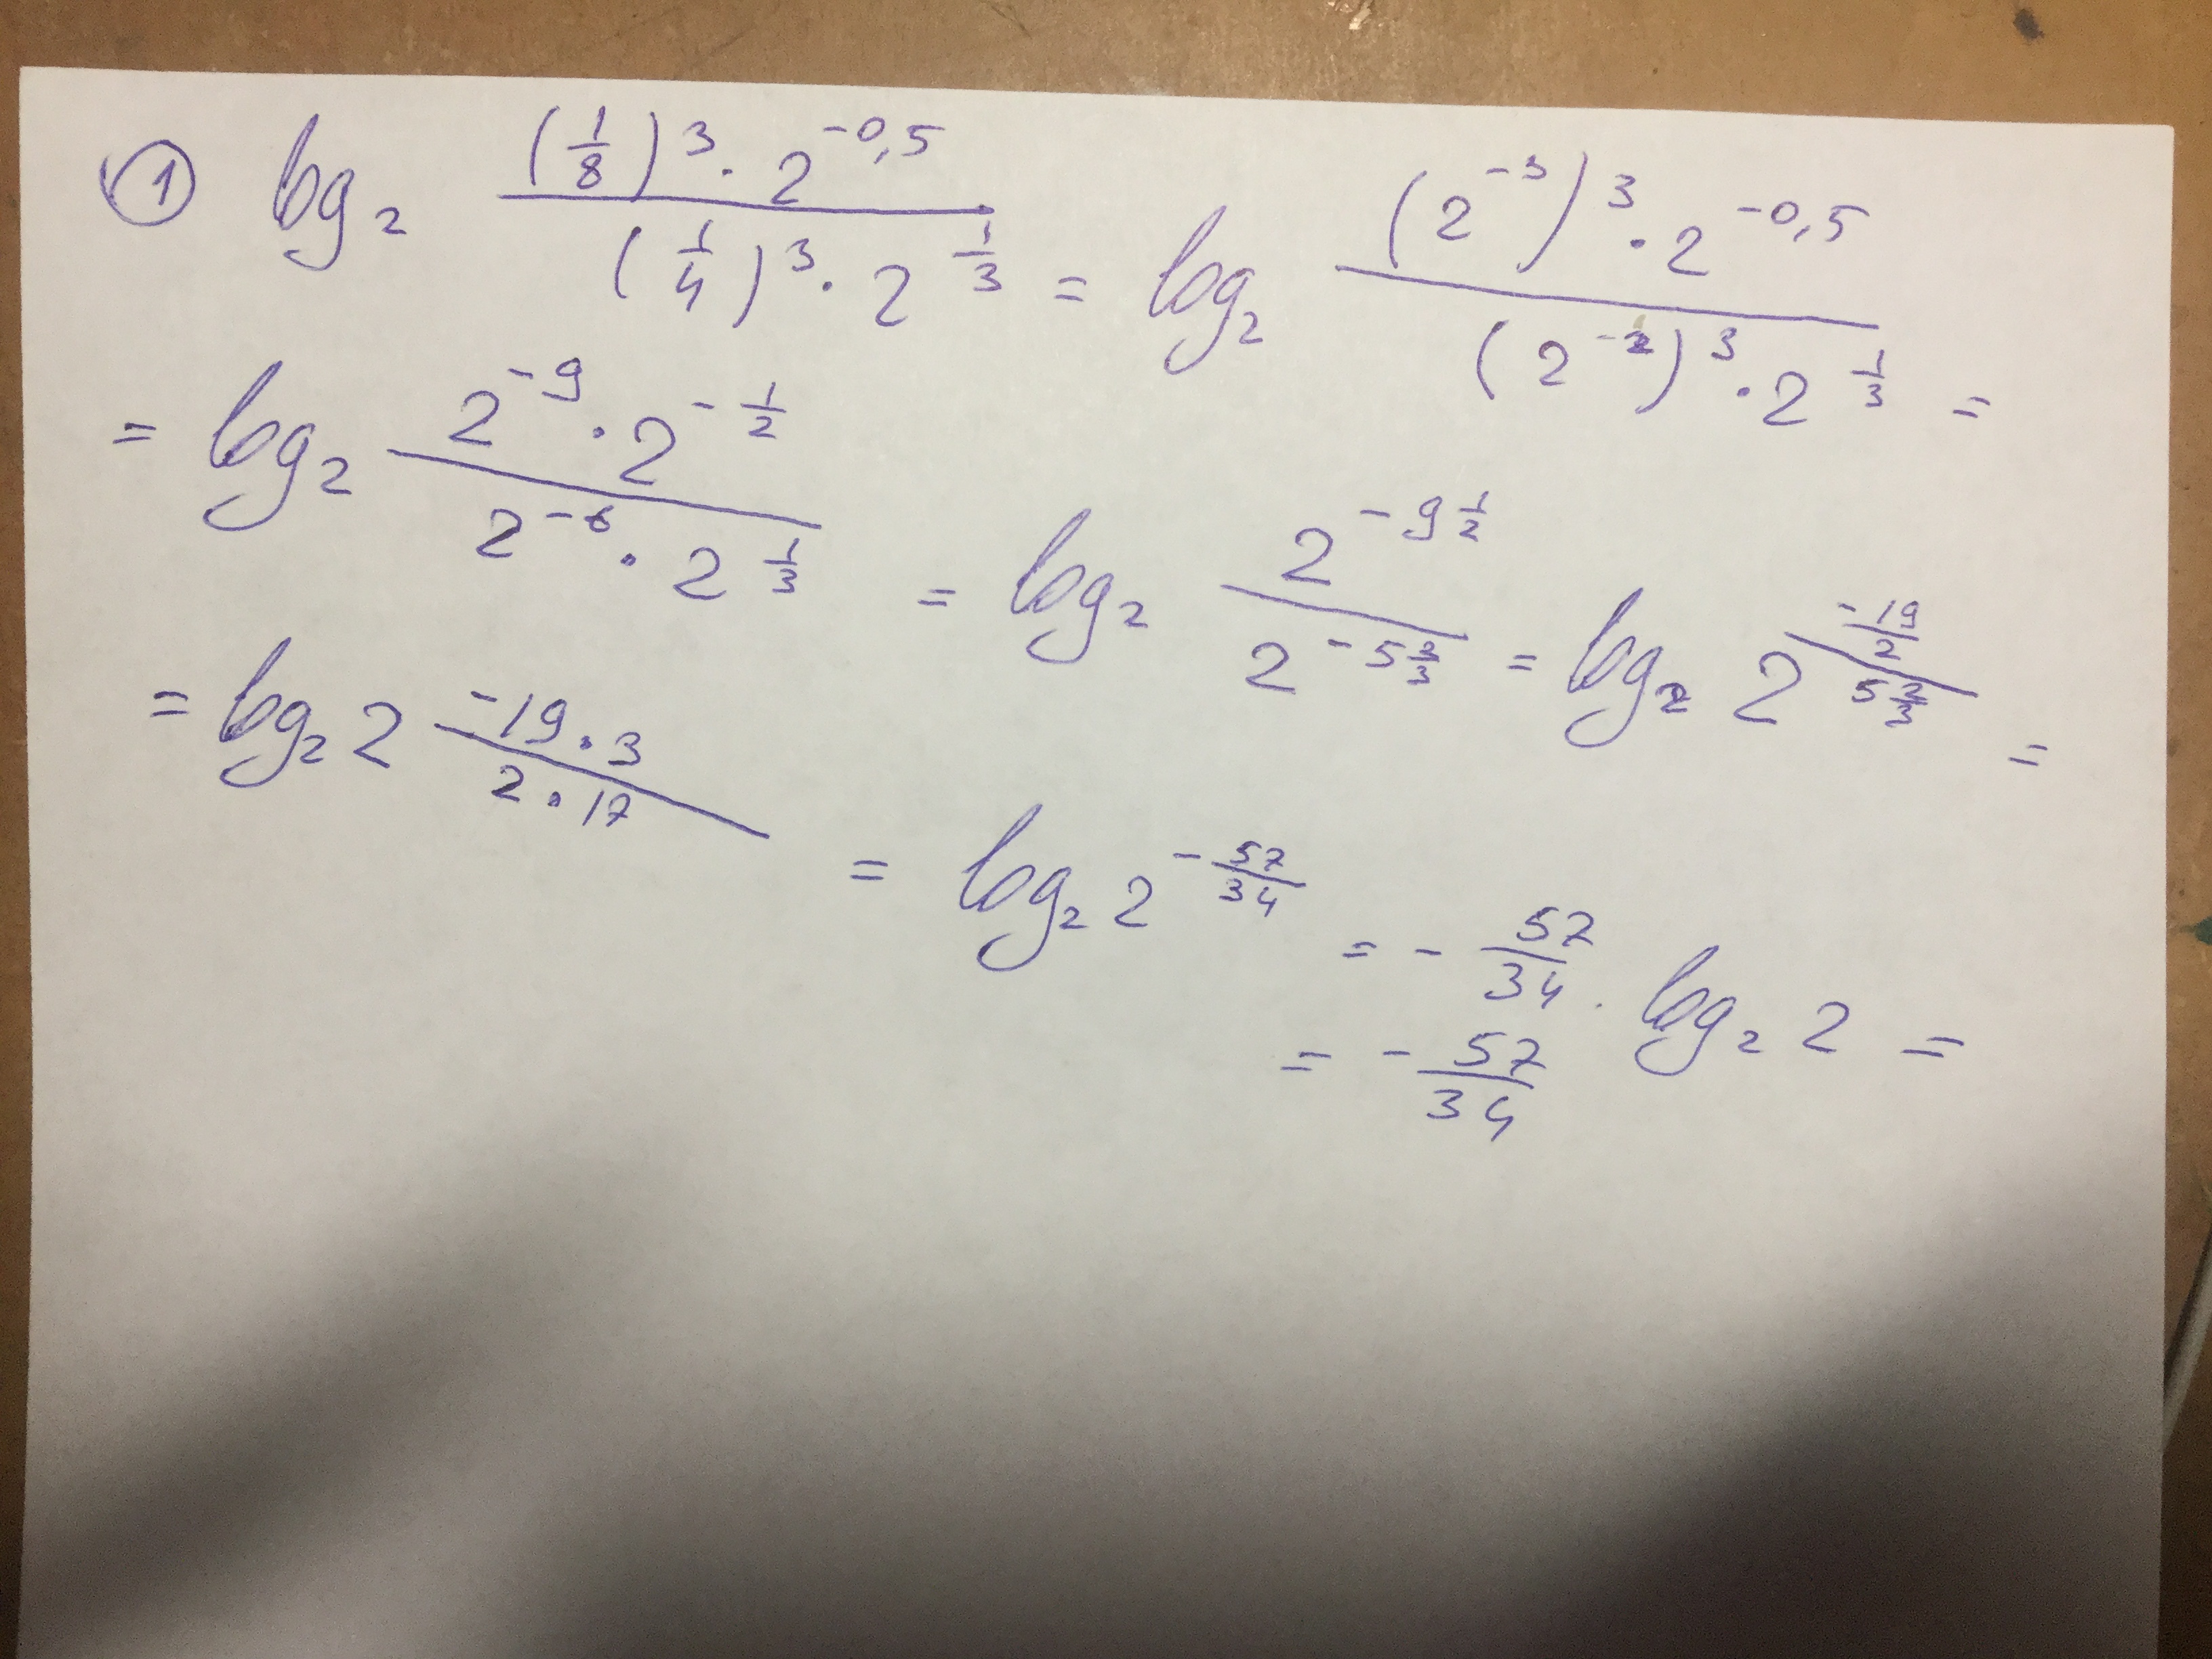 ① log₂ ((1/8)³ · 2^(-0,5)) / ((1/4)³ · 2^(1/3)) = log₂ ((2^(-3))³ · 2^(-0,5)) / ((2^(-2))³ · 2^(1/3)) =
= log₂ (2^(-9) · 2^(-1/2)) / (2^(-6) · 2^(1/3)) = log₂ (2^(-9 1/2)) / (2^(-5 2/3)) = log₂ 2^((-19/2) / (5 2/3)) =
= log₂ 2^((-19 · 3) / (2 · 17)) = log₂ 2^(-57/34) = - 57/34 · log₂ 2 =
= - 57/34